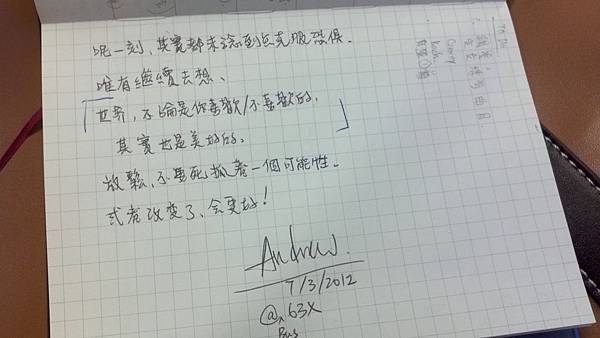 呢一刻，其實都未諗到点克服恐俱.
唯有繼續去想、
「世界，不論是你喜歡/不喜歡的，
其實也是美好的。」
放鬆，不要死抓着一個可能性.
或者改变了、会更好！
Andrew.
7/3/2012
@ 63X
Bus